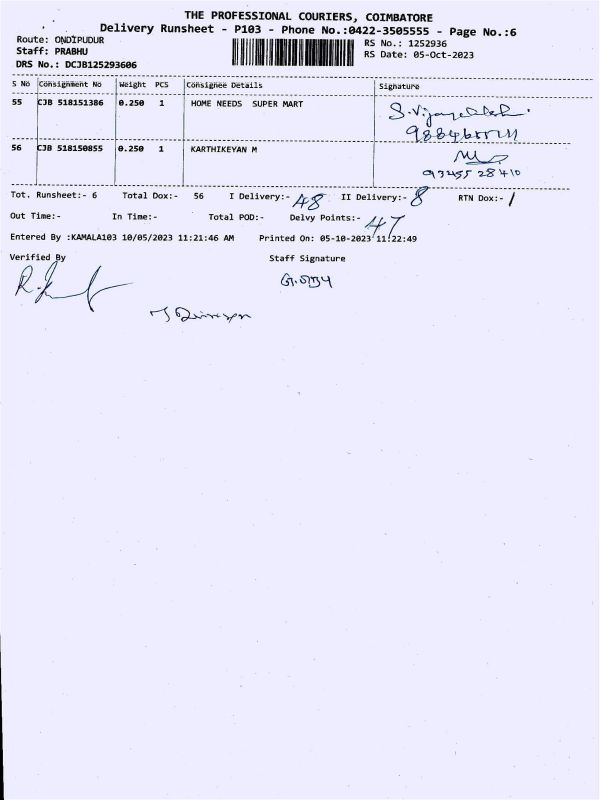 THE PROFESSIONAL COURIERS, COIMBATORE
Delivery Runsheet - P103 - Phone No.:0422-3505555 - Page No.:6
Route: ONDIPUDUR
RS No.: 1252936
Staff: PRABHU
RS Date: 05-Oct-2023
DRS No.: DCJB125293606
S No Consignment No Weight PCS Consignee Details Signature
55 CJB 518151386 0.250 1 HOME NEEDS SUPER MART
56 CJB 518150855 0.250 1 KARTHIKEYAN M
93455 28410
Tot. Runsheet:- 6 Total Dox:- 56 I Delivery:- 48 II Delivery:- 8 RTN Dox:- /
Out Time:- In Time:- Total POD:- Delvy Points:- 47
Entered By :KAMALA103 10/05/2023 11:21:46 AM Printed On: 05-10-2023 11:22:49
Verified By Staff Signature